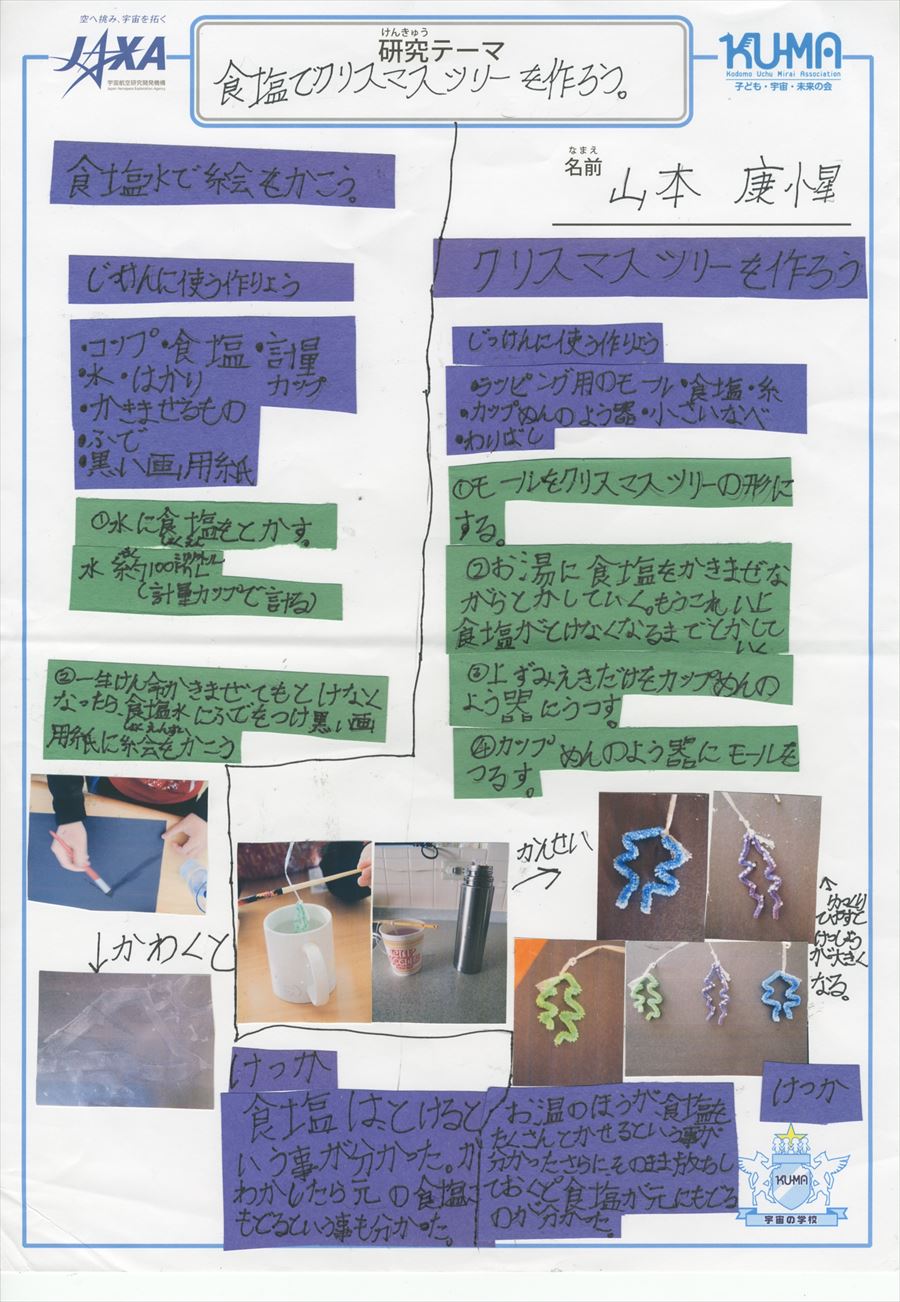 空へ挑み、宇宙を拓く
JAXA
宇宙航空研究開発機構
Japan Aerospace Exploration Agency
けんきゅう
研究テーマ
食塩でクリスマスツリーを作ろう。
KU-MA
Kodomo Uchu Mirai Association
子ども・宇宙・未来の会
なまえ
名前
山本 康惺
食塩水で絵をかこう。
じっけんに使う作りょう
・コップ・食塩・計量カップ
・水・はかり
・かきまぜるもの
・ふで
・黒い画用紙
①水に食塩をとかす。
しょくえん
水 約100
(計量カップで計る)
②一生けん命かきまぜてもとけなく
なったら、食塩水にふでをつけ黒い画
しょくえんすい
用紙に絵をかこう
↓かわくと
クリスマスツリーを作ろう
じっけんに使う作りょう
・ラッピング用のモール・食塩・糸
・カップめんのよう器・小さいなべ
・わりばし
①モールをクリスマスツリーの形に
する。
②お湯に食塩をかきまぜな
がらとかしていく。もうこれい上
食塩がとけなくなるまでとかして
いく
③上ずみえきだけをカップめんの
よう器にうつす。
④カップめんのよう器にモールを
つるす。
かんせい
↑
ゆっくり
ひやすと
けっしょう
が大きく
なる。
けっか
食塩は、とけると
いう事が分かった。か
わかしたら元の食塩に
もどるという事も分かった。
けっか
お温のほうが食塩を
たくさんとかせるという事が
分かったさらにそのまま放ちし
ておくと食塩が元にもどる
のが分かった。
KU-MA
宇宙の学校